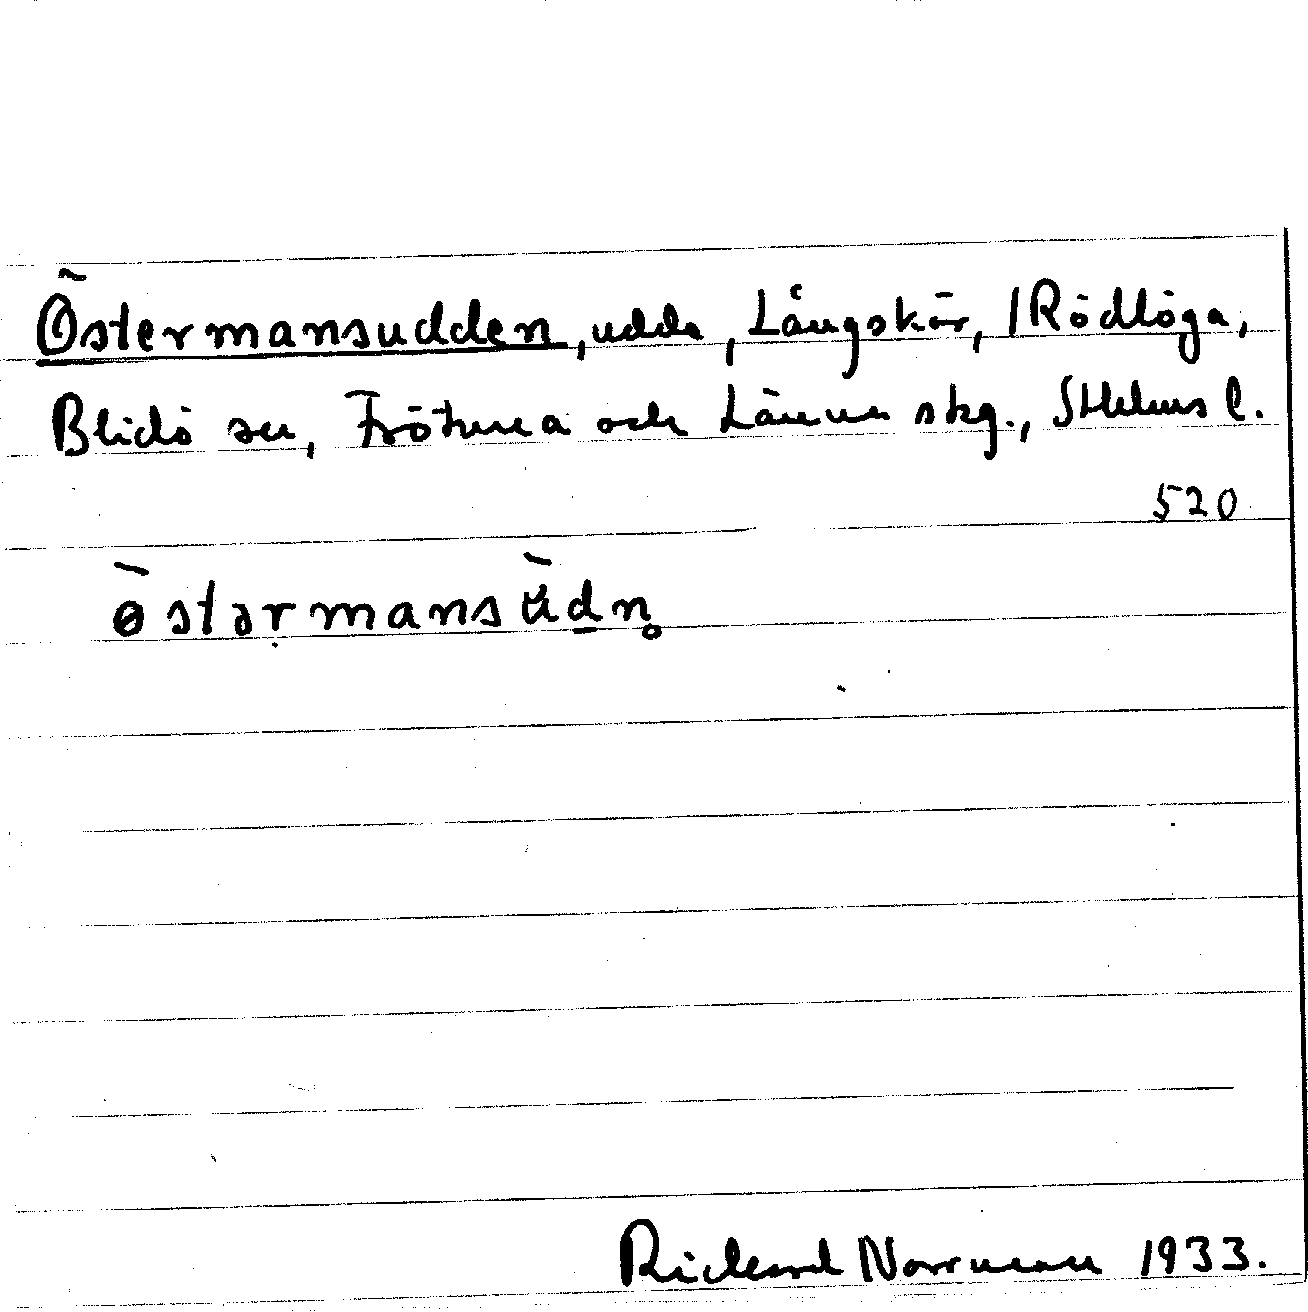 Östermansudden, udde, Långskär, /Rödlöga,
Blidö sn, Frötuna och Länna skg., Sthlms l.
520
ø̀stərmansùdn̥
Rickard Norrman 1933.